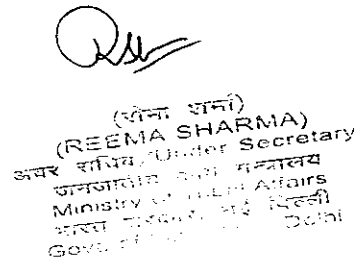 (रीमा शर्मा)
(REEMA SHARMA)
अवर सचिव/Under Secretary
जनजातीय कार्य मन्त्रालय
Ministry of Tribal Affairs
भारत सरकार, नई दिल्ली
Govt. of Delhi